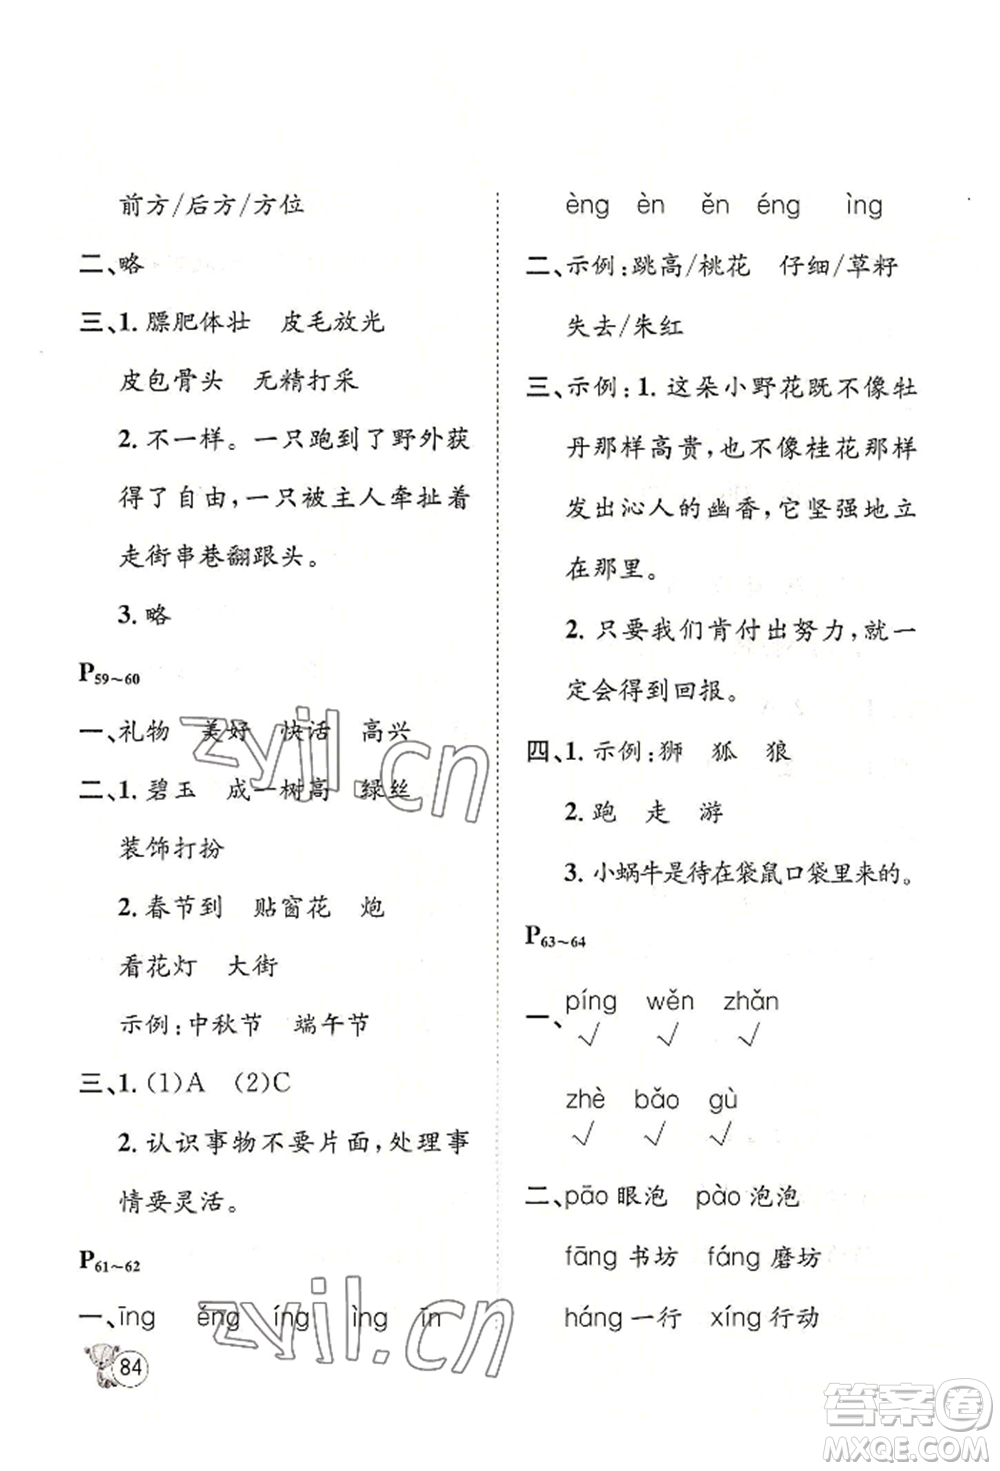 前方/后方/方位
二、略
三、1. 膘肥体壮 皮毛放光
皮包骨头 无精打采
2. 不一样。一只跑到了野外获
得了自由，一只被主人牵扯着
走街串巷翻跟头。
3. 略
P59~60
一、礼物 美好 快活 高兴
二、1. 碧玉 成一树高 绿丝
装饰打扮
2. 春节到 贴窗花 炮
看花灯 大街
示例：中秋节 端午节
三、1. (1)A (2)C
2. 认识事物不要片面，处理事
情要灵活。
P61~62
一、īng ěng íng ìng īn
84
èng èn ěn éng ìng
二、示例：跳高/桃花 仔细/草籽
失去/朱红
三、示例：1. 这朵小野花既不像牡
丹那样高贵，也不像桂花那样
发出沁人的幽香，它坚强地立
在那里。
2. 只要我们肯付出努力，就一
定会得到回报。
四、1. 示例：狮 狐 狼
2. 跑 走 游
3. 小蜗牛是待在袋鼠口袋里来的。
P63~64
一、píng wěn zhǎn
√ √ √
zhè bǎo gù
√ √ √
二、pāo 眼泡 pào 泡泡
fāng 书坊 fáng 磨坊
háng 一行 xíng 行动
zyjl.cn
zyjl.cn
答案圈
MXQE.COM